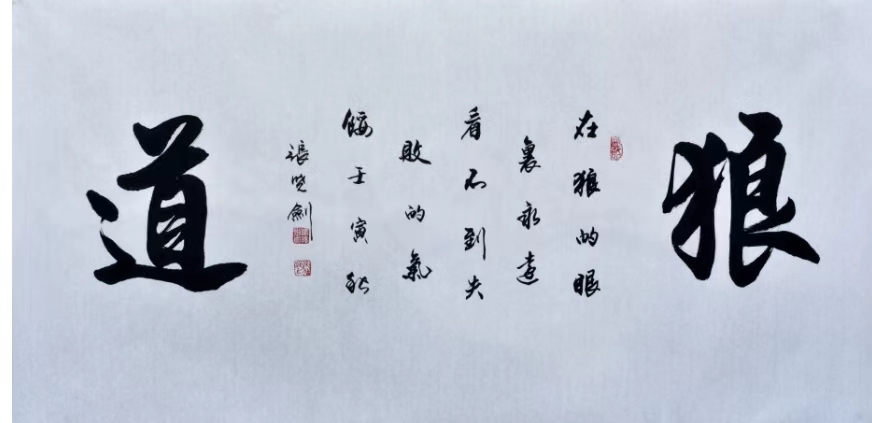 狼
在狼的眼
裏永遠
看不到失
敗的氣
餒壬寅秋
張曉劍
道